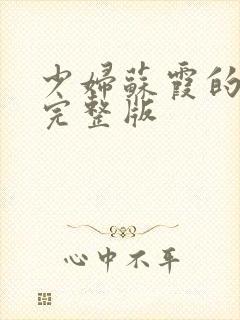 少婦蘇霞的
完整版
心中不平